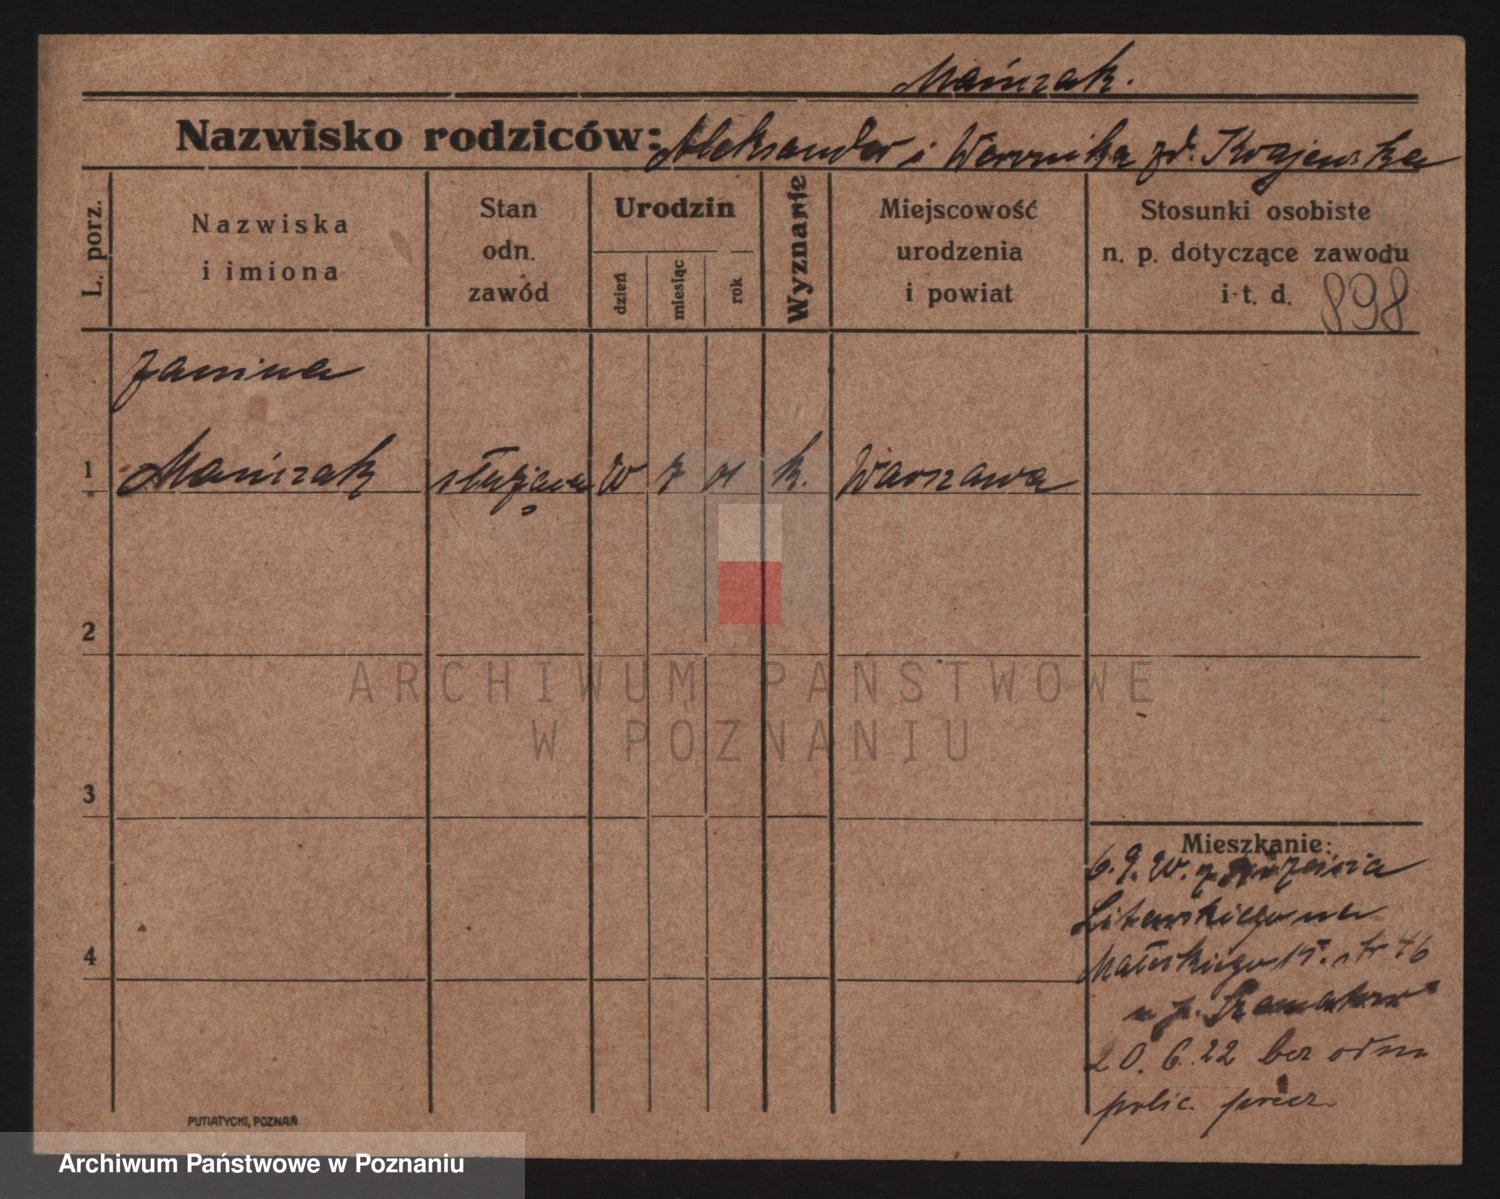 Mańczak.
Nazwisko rodziców: Aleksander i Weronika zd. Krajewska
L. porz.
Nazwiska
i imiona
Stan
odn.
zawód
Urodzin
dzień
miesiąc
rok
Wyznanie
Miejscowość
urodzenia
i powiat
Stosunki osobiste
n. p. dotyczące zawodu
i t. d.
898
Janina
1 Mańczak służąca k. Warszawa
2
3
4
Mieszkanie:
6. 9.
46
u p.
20. 6. 22 bez odm
polic. precz
PUTIATYCKI, POZNAŃ
ARCHIWUM PAŃSTWOWE
W POZNANIU
Archiwum Państwowe w Poznaniu